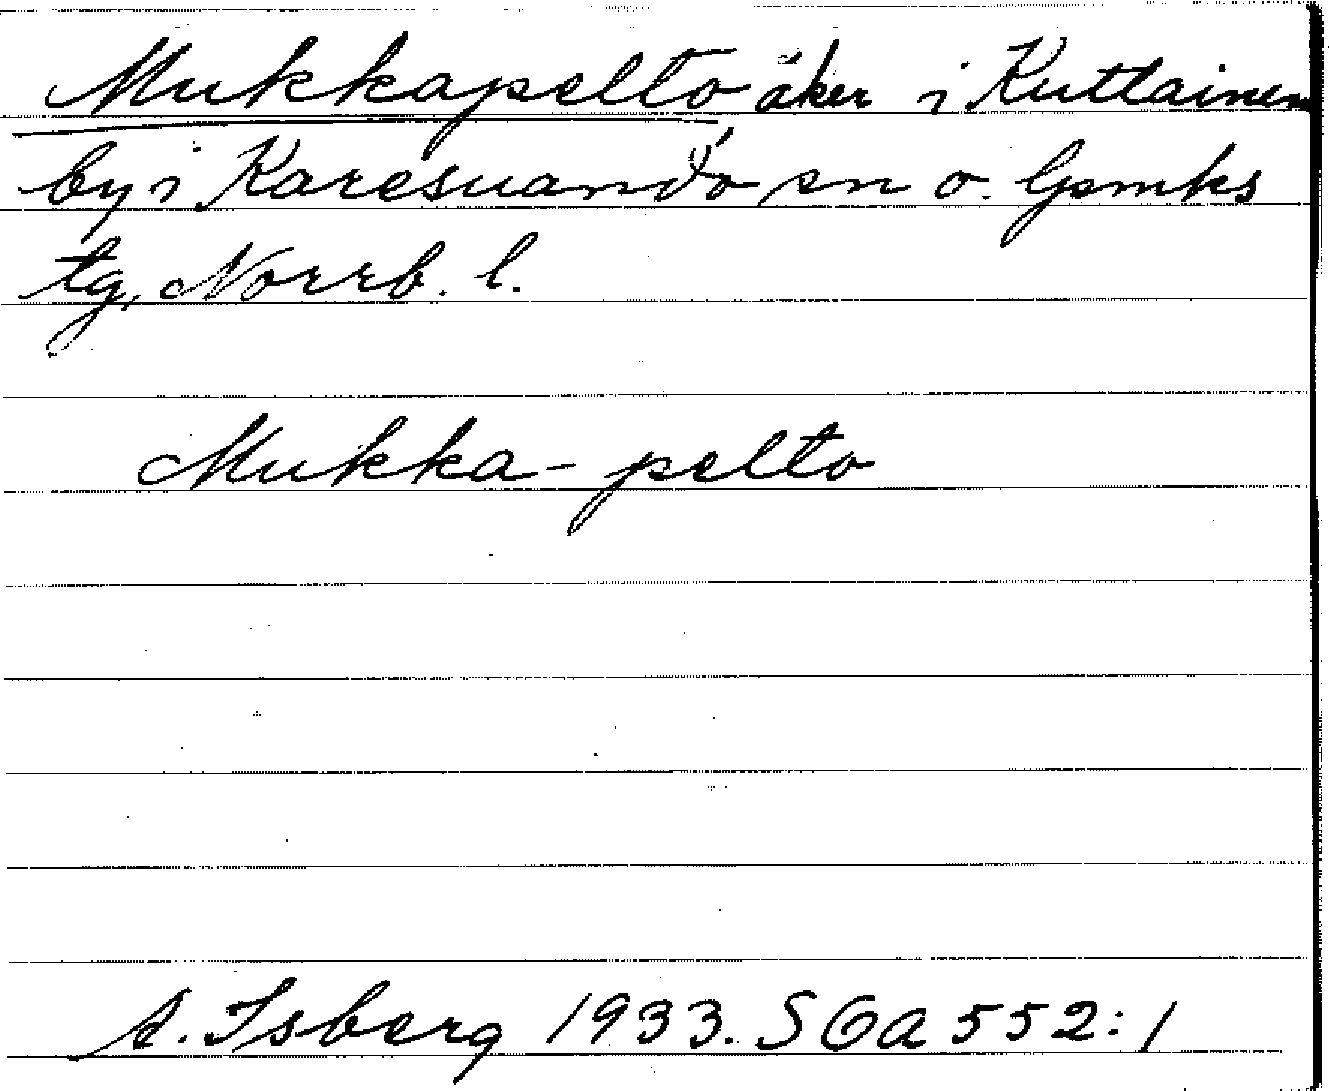 Mukkapelto åker i Kuttainen
by i Karesuando sn o. lpmks
tg, Norrb. l.
Mukka-pelto
A. Isberg 1933. SOA 552:1